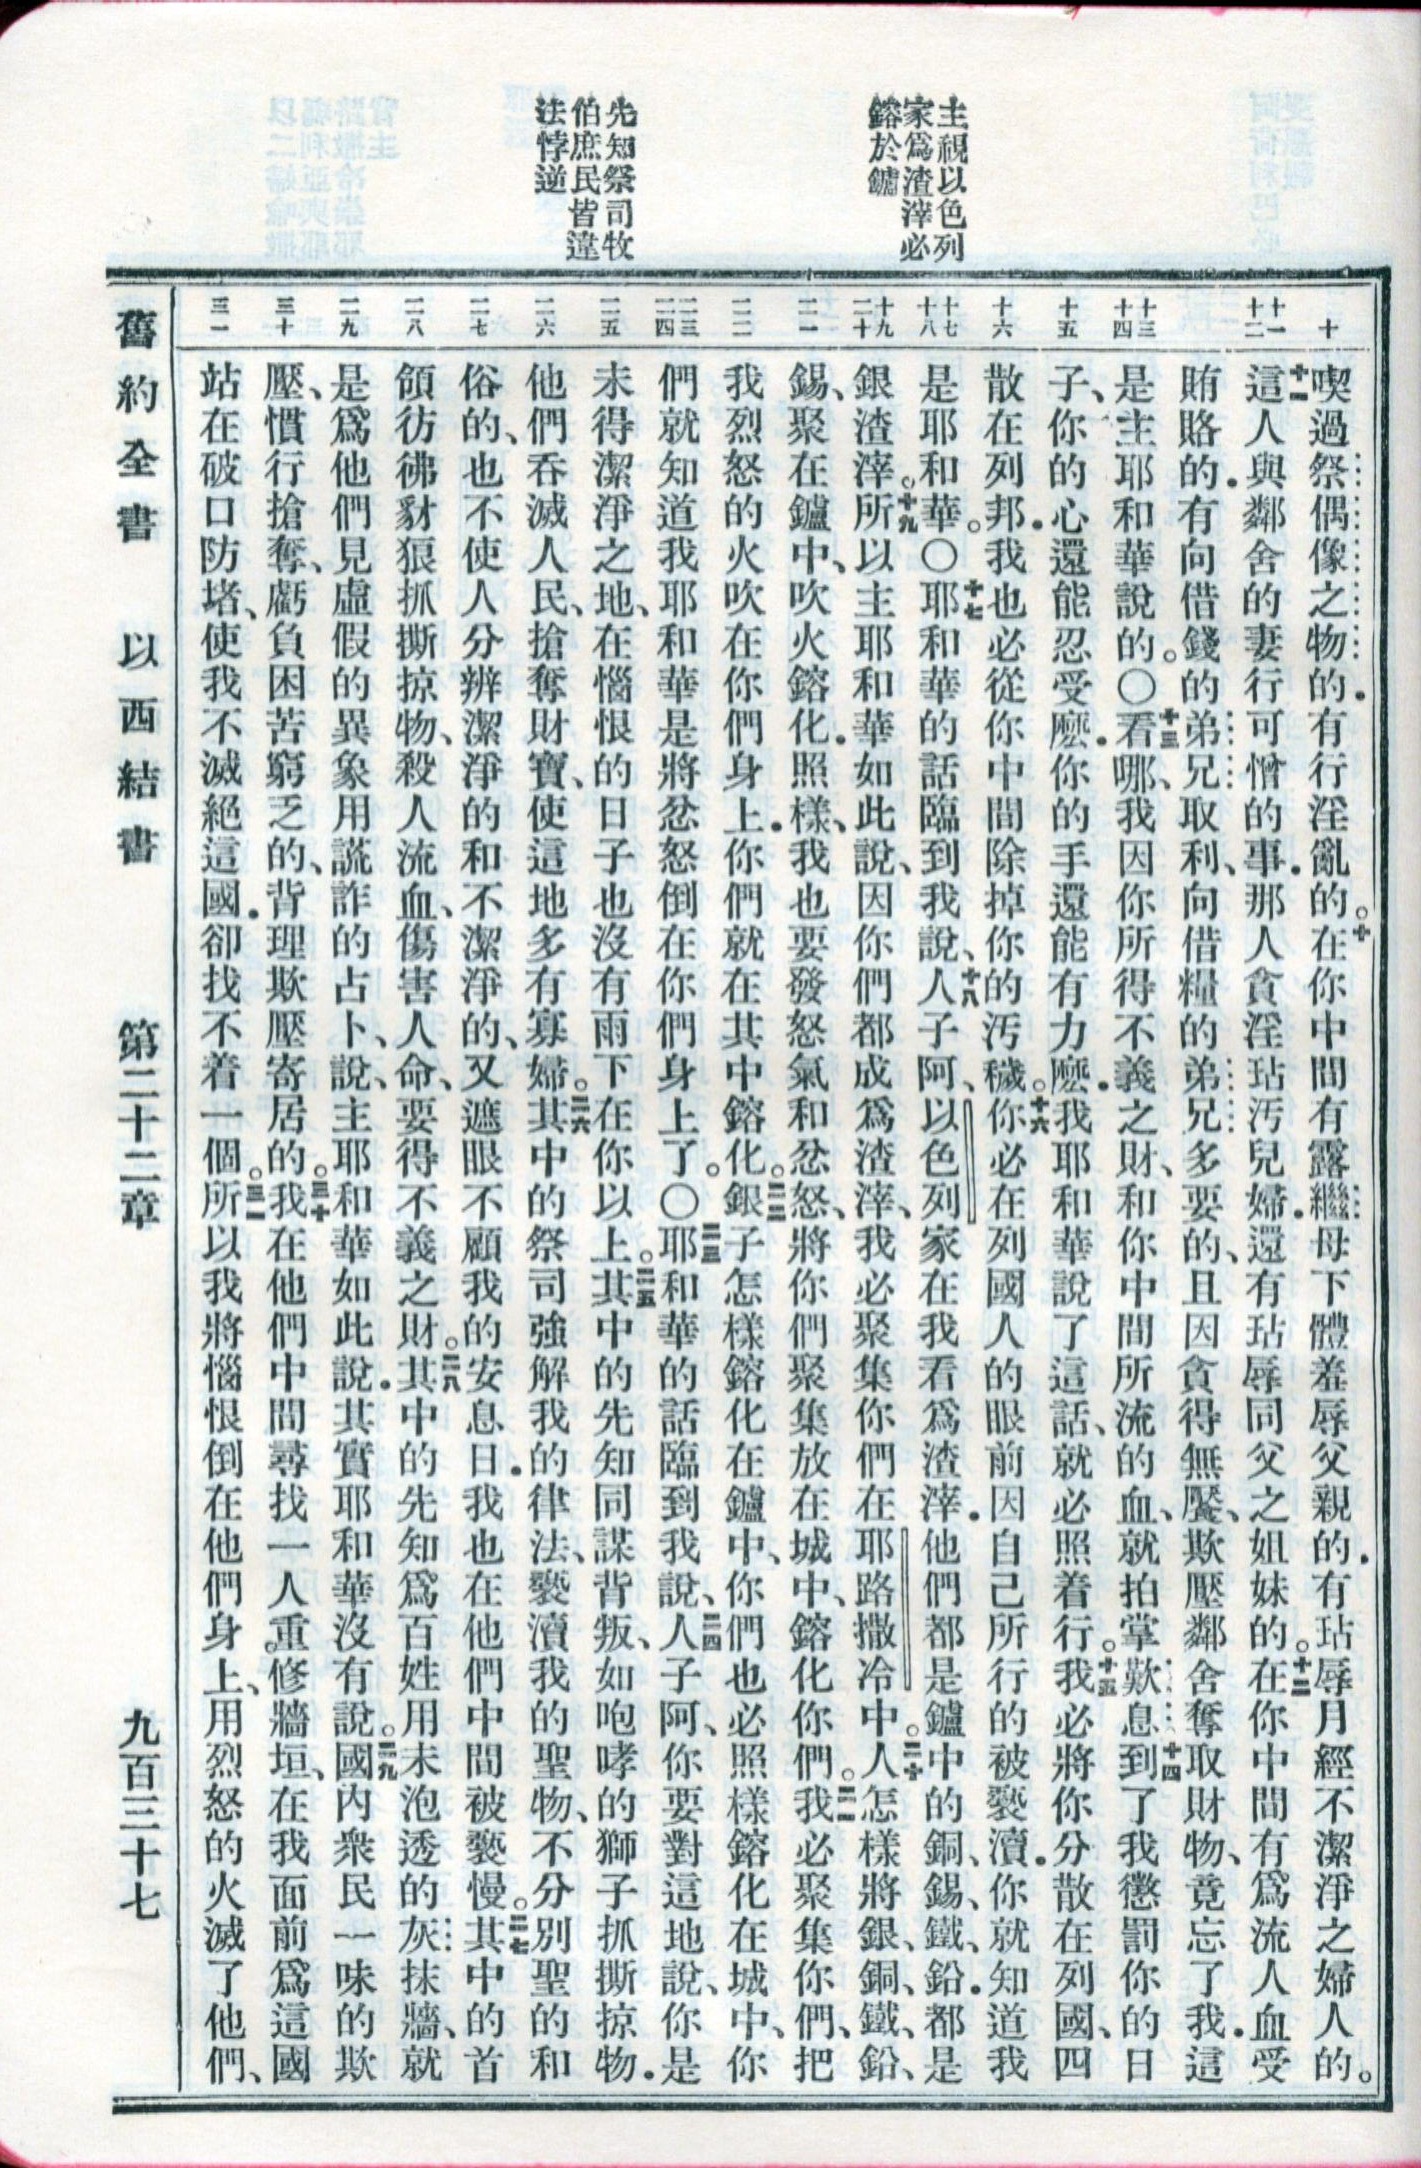 主視以色列
家爲渣滓必
鎔於鑪
先知祭司牧
伯庶民皆違
法悖逆
十
十一
十二
十三
十四
十五
十六
十七
十八
十九
二十
二一
二二
二三
二四
二五
二六
二七
二八
二九
三十
三一
喫過祭偶像之物的．有行淫亂的。十在你中間有露繼母下體羞辱父親的．有玷辱月經不潔淨之婦人的。
十一這人與鄰舍的妻行可憎的事．那人貪淫玷汚兒婦．還有玷辱同父之姐妹的。十二在你中間有爲流人血受
賄賂的．有向借錢的弟兄取利、向借糧的弟兄多要的、且因貪得無饜、欺壓鄰舍奪取財物、竟忘了我．這
是主耶和華說的。〇十三看哪、我因你所得不義之財、和你中間所流的血、就拍掌歎息。十四到了我懲罰你的日
子、你的心還能忍受麼．你的手還能有力麼．我耶和華說了這話、就必照着行。十五我必將你分散在列國、四
散在列邦．我也必從你中間除掉你的汚穢。十六你必在列國人的眼前因自己所行的被褻瀆．你就知道我
是耶和華。〇十七耶和華的話臨到我說、十八人子阿、以色列家在我看爲渣滓．他們都是鑪中的銅、錫、鐵、鉛．都是
銀渣滓。十九所以主耶和華如此說、因你們都成爲渣滓、我必聚集你們在耶路撒冷中。二十人怎樣將銀、銅、鐵、鉛、
錫、聚在鑪中、吹火鎔化．照樣、我也要發怒氣和忿怒、將你們聚集放在城中、鎔化你們。二一我必聚集你們、把
我烈怒的火吹在你們身上．你們就在其中鎔化。二二銀子怎樣鎔化在鑪中、你們也必照樣鎔化在城中、你
們就知道我耶和華是將忿怒倒在你們身上了。〇二三耶和華的話臨到我說、二四人子阿、你要對這地說、你是
未得潔淨之地、在惱恨的日子也沒有雨下在你以上。二五其中的先知同謀背叛、如咆哮的獅子抓撕掠物．
他們吞滅人民、搶奪財寶、使這地多有寡婦。二六其中的祭司強解我的律法、褻瀆我的聖物、不分別聖的和
俗的、也不使人分辨潔淨的和不潔淨的、又遮眼不顧我的安息日．我也在他們中間被褻慢。二七其中的首
領彷彿豺狼抓撕掠物、殺人流血、傷害人命、要得不義之財。二八其中的先知爲百姓用未泡透的灰抹牆、就
是爲他們見虛假的異象用謊詐的占卜、說、主耶和華如此說．其實耶和華沒有說。二九國內衆民一味的欺
壓、慣行搶奪、虧負困苦窮乏的、背理欺壓寄居的。三十我在他們中間尋找一人重修牆垣、在我面前爲這國
站在破口防堵、使我不滅絕這國．卻找不着一個。三一所以我將惱恨倒在他們身上、用烈怒的火滅了他們、
舊約全書　以西結書　第二十二章　九百三十七